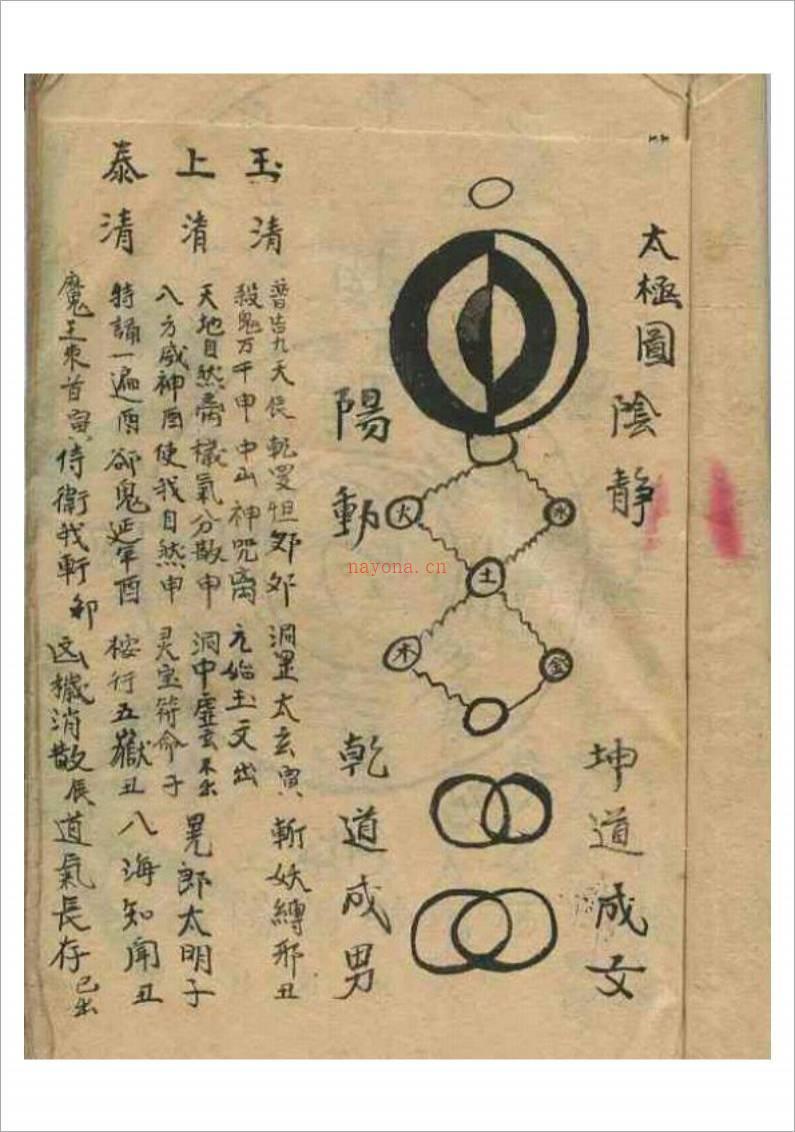 太極圖
隂静
坤道成女
火
水
土
木
金
陽動
乾道成男
玉清
上清
泰清
普告九天 乾罗怛 洞罡太玄寅 斬妖縛邪丑
殺鬼万千申 中山神咒 元始玉文出
天地自然 穢氣分散申 洞中虛玄 晃郎太明子
八方威神酉 使我自然申 灵宝符命子
持誦一遍酉 卻鬼延年酉 桉行五嶽丑 八海知聞丑
魔王束首寅 侍衛我軒卯 凶穢消散辰 道氣長存
nayona.cn